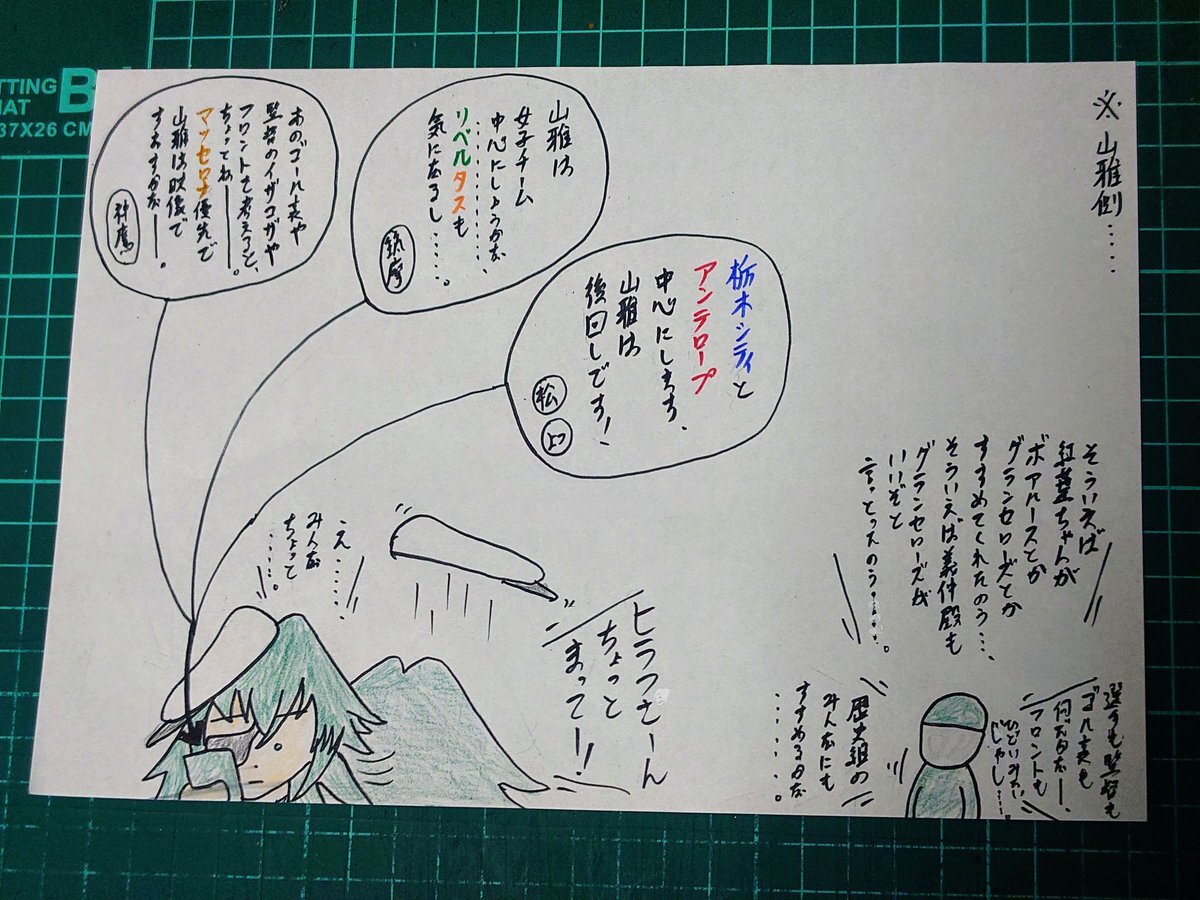 ※山雅側……
そういえば
紅葉ちゃんが
ボアルースとか
グランセローズとか
すすめてくれたのう…、
そういえば義仲殿も
グランセローズが
いいぞと
言っとったのう……。
選手も監督も
ゴール裏も
何だかなー、
フロントも
じゃし……。
歴史組の
みんなにも
すすめるかな
………。
栃木シティと
アンテロープ
中心にします、
山雅は
後回しです!
松
山雅は
女子チーム
中心にしようかな
…………、
リベルタスも
気になるし……。
筑摩
あのゴール裏や
監督のイザコザや
フロントを考えると、
ちょってねー。
マッセロナ優先で
山雅は最後で
すますかなー。
え……
みんな
ちょっと
……。
ヒラフさーん
ちょっと
まってー!
CUTTING
MAT
37X26 CM